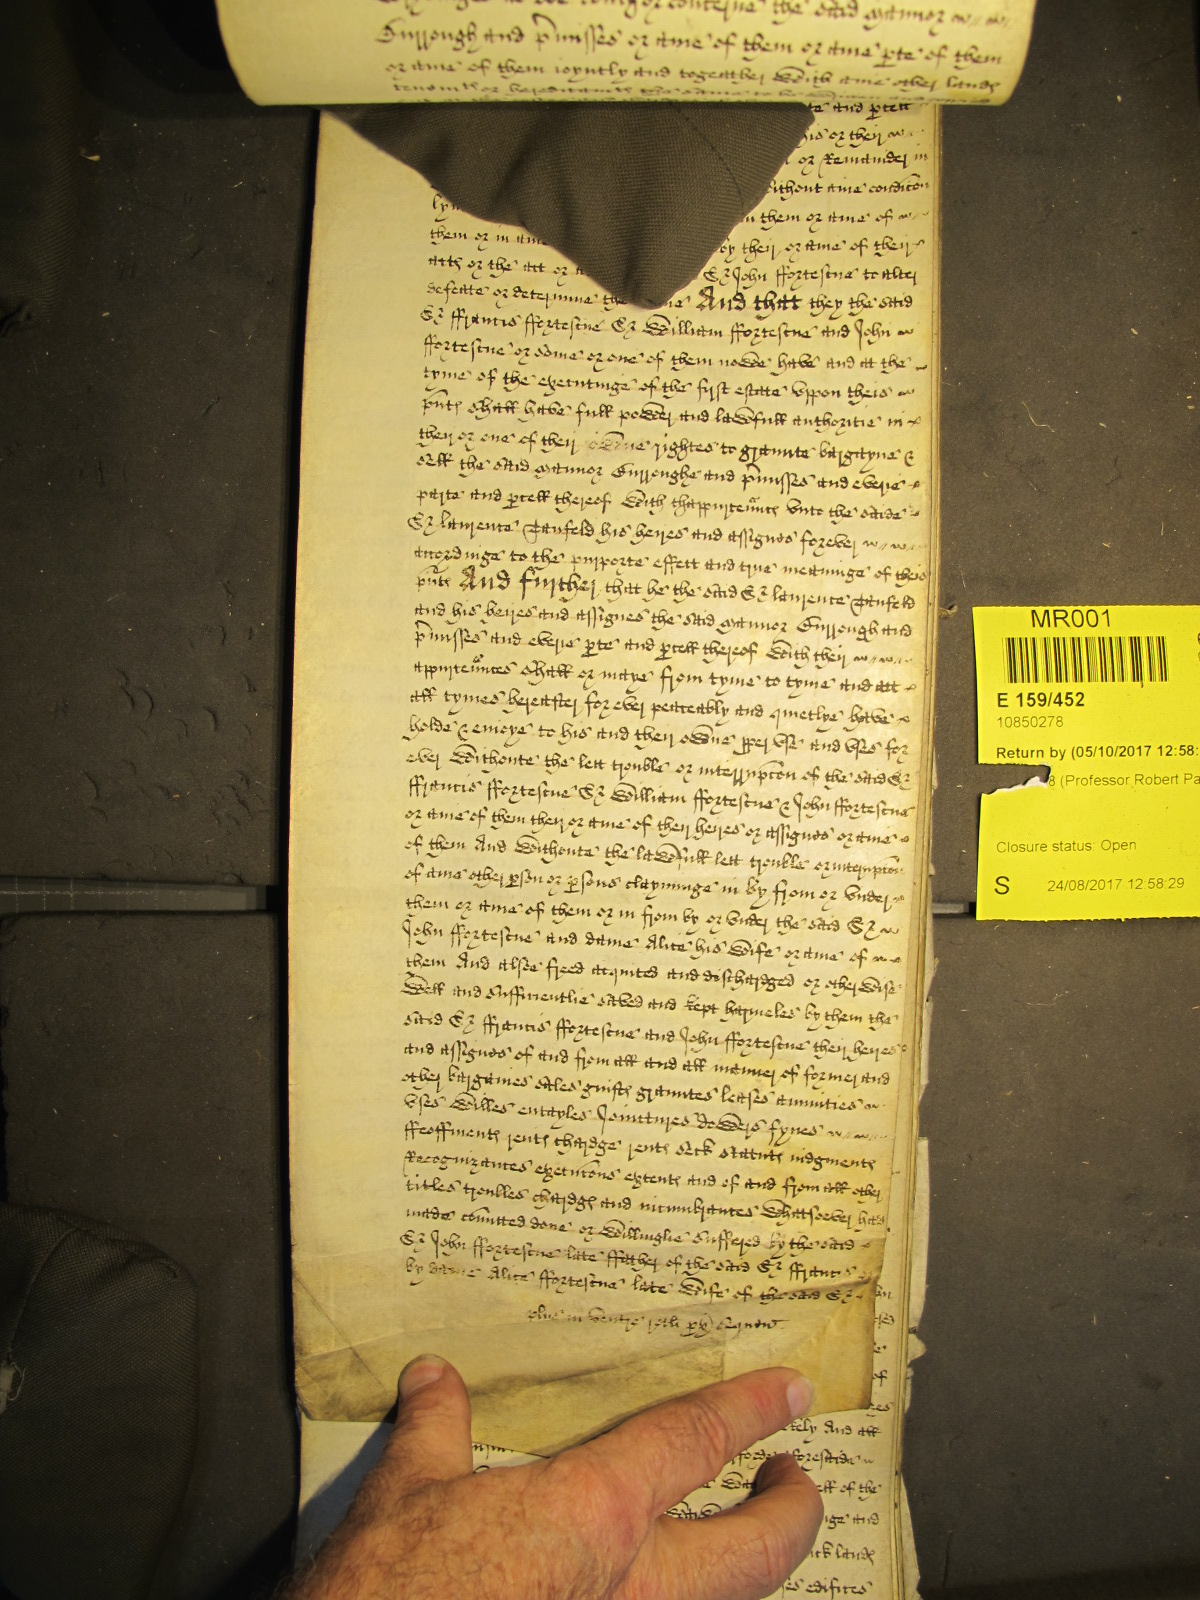 the said mannor
Burrough and p'misses or anie of them or anie p'te of them
or anie of them ioyntly and together With anie other lands
and p'cell
his or their
or Remainder in
ithout anie condicon
them or anie of
them or in anie by their or anie of their
acts or the act or Sr John ffortescue to alter
defeate or determine the And that they the said
Sr ffrancis ffortescue Sr William ffortescue and John
ffortescue or some or one of them nowe have and at the
tyme of the executinge of the fyrst estate vppon theis
p'nts shall have full power and lawfull authoritie in
their or one of their owne rightes to graunte bargayne &
sell the said mannor Burroughe and p'misses and everie
parte and p'cell thereof With thappurten'nces vnto the saide
Sr laurence Tanfeld his heires and assignes forever
accordinge to the purporte effect and true meaninge of theis
p'nts And further that he the said Sr laurence Tanfeld
and his heires and assignes the said mannor Burrough and
p'misses and everie p'te and p'cell thereof With their
appurten'nces shall or maye from tyme to tyme and att
all tymes hereafter for ever peaceably and quietlye have
holde & enioye to his and their owne p'per vse and vses for
ever Withoute the lett trouble or interrupcon of the said Sr
ffrancis ffortescue Sr William ffortescue & John ffortescue
or anie of them their or anie of their heires or assignes or anie
of them And Withoute the lawfull lett trouble or interrupcon
of anie other p'son or p'sons clayminge in by from or vnder
them or anie of them or in from by or vnder the said Sr
John ffortescue and dame Alice his Wife or anie of
them And alsoe freed acquited and dischardged or otherwise
Well and sufficientlie saved and kept harmeles by them the
said Sr ffrancis ffortescue and John ffortescue their heires
and assignes of and from all and all manner of former and
other bargaines sales guifts grauntes leases annuities
vses Willes entayles Jointures dowers fynes
ffeoffments rents chardge rents seck statuts iudgments
Recognizances execucons extents and of and from all other
titles troubles chardgs and incumbrances Whatsoever had
made comitted done or Willinglie suffered by the said
Sr John ffortescue late ffather of the said Sr ffrancis
by dame Alice ffortescue late Wife of the said Sr
plus in
of
And all
of the
and
lands
edifices
MR001
E 159/452
10850278
Return by (05/10/2017 12:58:
8 (Professor Robert Pa
Closure status: Open
S 24/08/2017 12:58:29